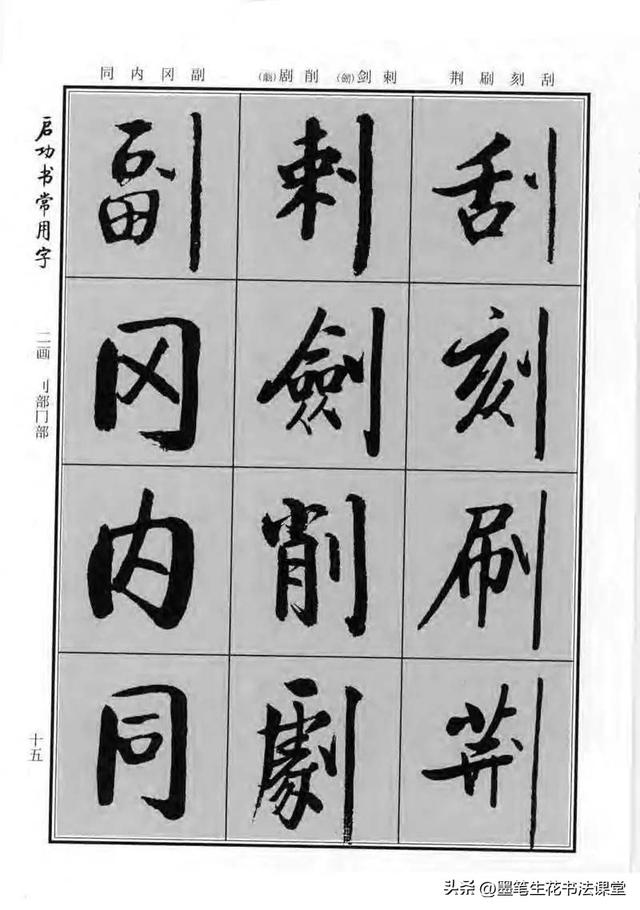 刮刻刷荆
刺剑(劍)削剧(劇)
副冈内同
刮
刻
刷
荆
刺
劍
削
劇
副
冈
内
同
启功书常用字
二画 刂部冂部
十五
头条@墨笔生花书法课堂